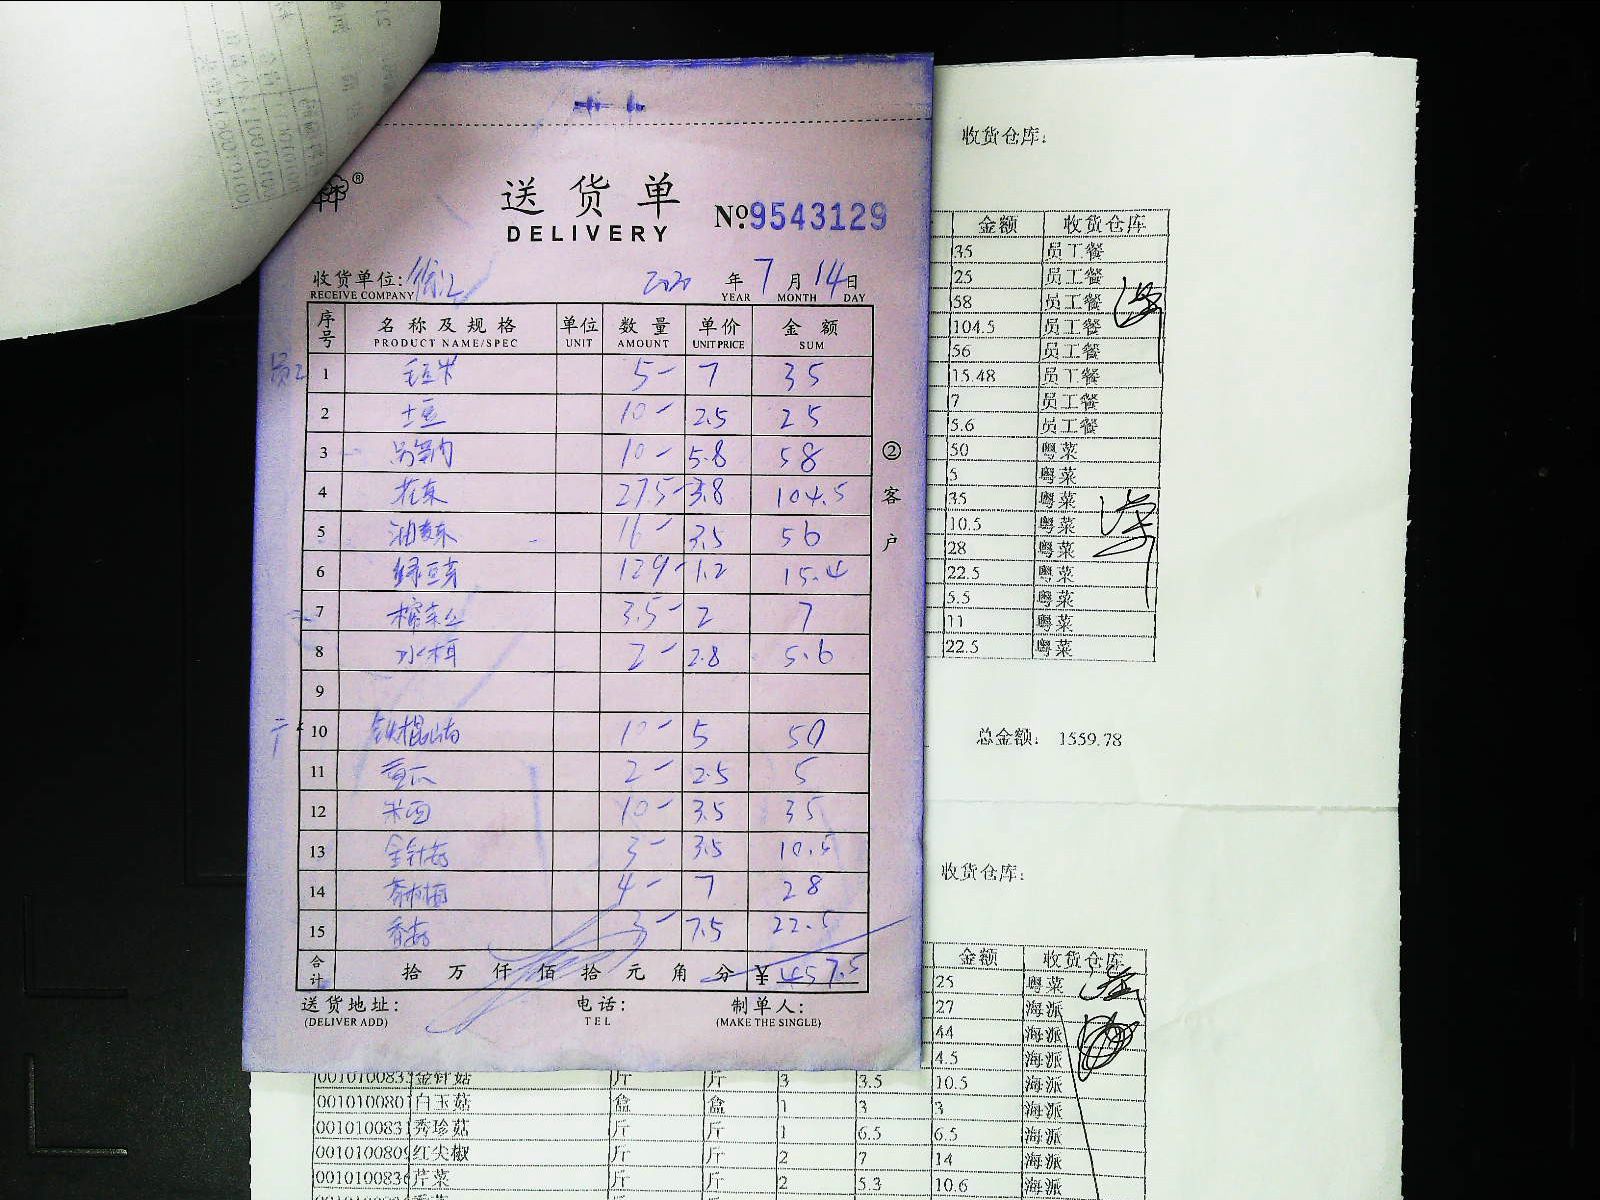 送货单
DELIVERY
No.9543129
收货单位: 徐汇 2020 年 7 月 14 日
RECEIVE COMPANY YEAR MONTH DAY
序号 名称及规格 单位 数量 单价 金额
PRODUCT NAME/SPEC UNIT AMOUNT UNIT PRICE SUM
员工 1 毛豆米 5 7 35
2 土豆 10 2.5 25
3 10 5.8 58
4 花菜 27.5 3.8 104.5
5 油麦菜 16 3.5 56
6 绿豆芽 12.9 1.2 15.4
7 榨菜丝 3.5 2 7
8 水木耳 2 2.8 5.6
9
10 铁棍山药 10 5 50
11 黄瓜 2 2.5 5
12 10 3.5 35
13 金针菇 3 3.5 10.5
14 茶树菇 4 7 28
15 香菇 3 7.5 22.5
合计 拾 万 仟 佰 拾 元 角 分 ¥ 457.5
送货地址: 电话: 制单人:
(DELIVER ADD) TEL (MAKE THE SINGLE)
②客户
收货仓库:
金额 收货仓库
35 员工餐
25 员工餐
58 员工餐
104.5 员工餐
56 员工餐
15.48 员工餐
7 员工餐
5.6 员工餐
50 粤菜
5 粤菜
35 粤菜
10.5 粤菜
28 粤菜
22.5 粤菜
5.5 粤菜
11 粤菜
22.5 粤菜
总金额: 1559.78
收货仓库:
金额 收货仓库
25 粤菜
27 海派
44 海派
4.5 海派
金针菇 斤 斤 3 3.5 10.5 海派
0010100801 白玉菇 盒 盒 1 3 3 海派
0010100831 秀珍菇 斤 斤 1 6.5 6.5 海派
001010080 红尖椒 斤 斤 2 7 14 海派
001010083 芹菜 斤 斤 2 5.3 10.6 海派